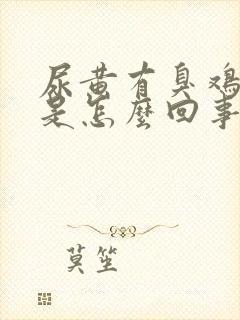 尿黄有臭鸡
是怎麽回事
莫笙